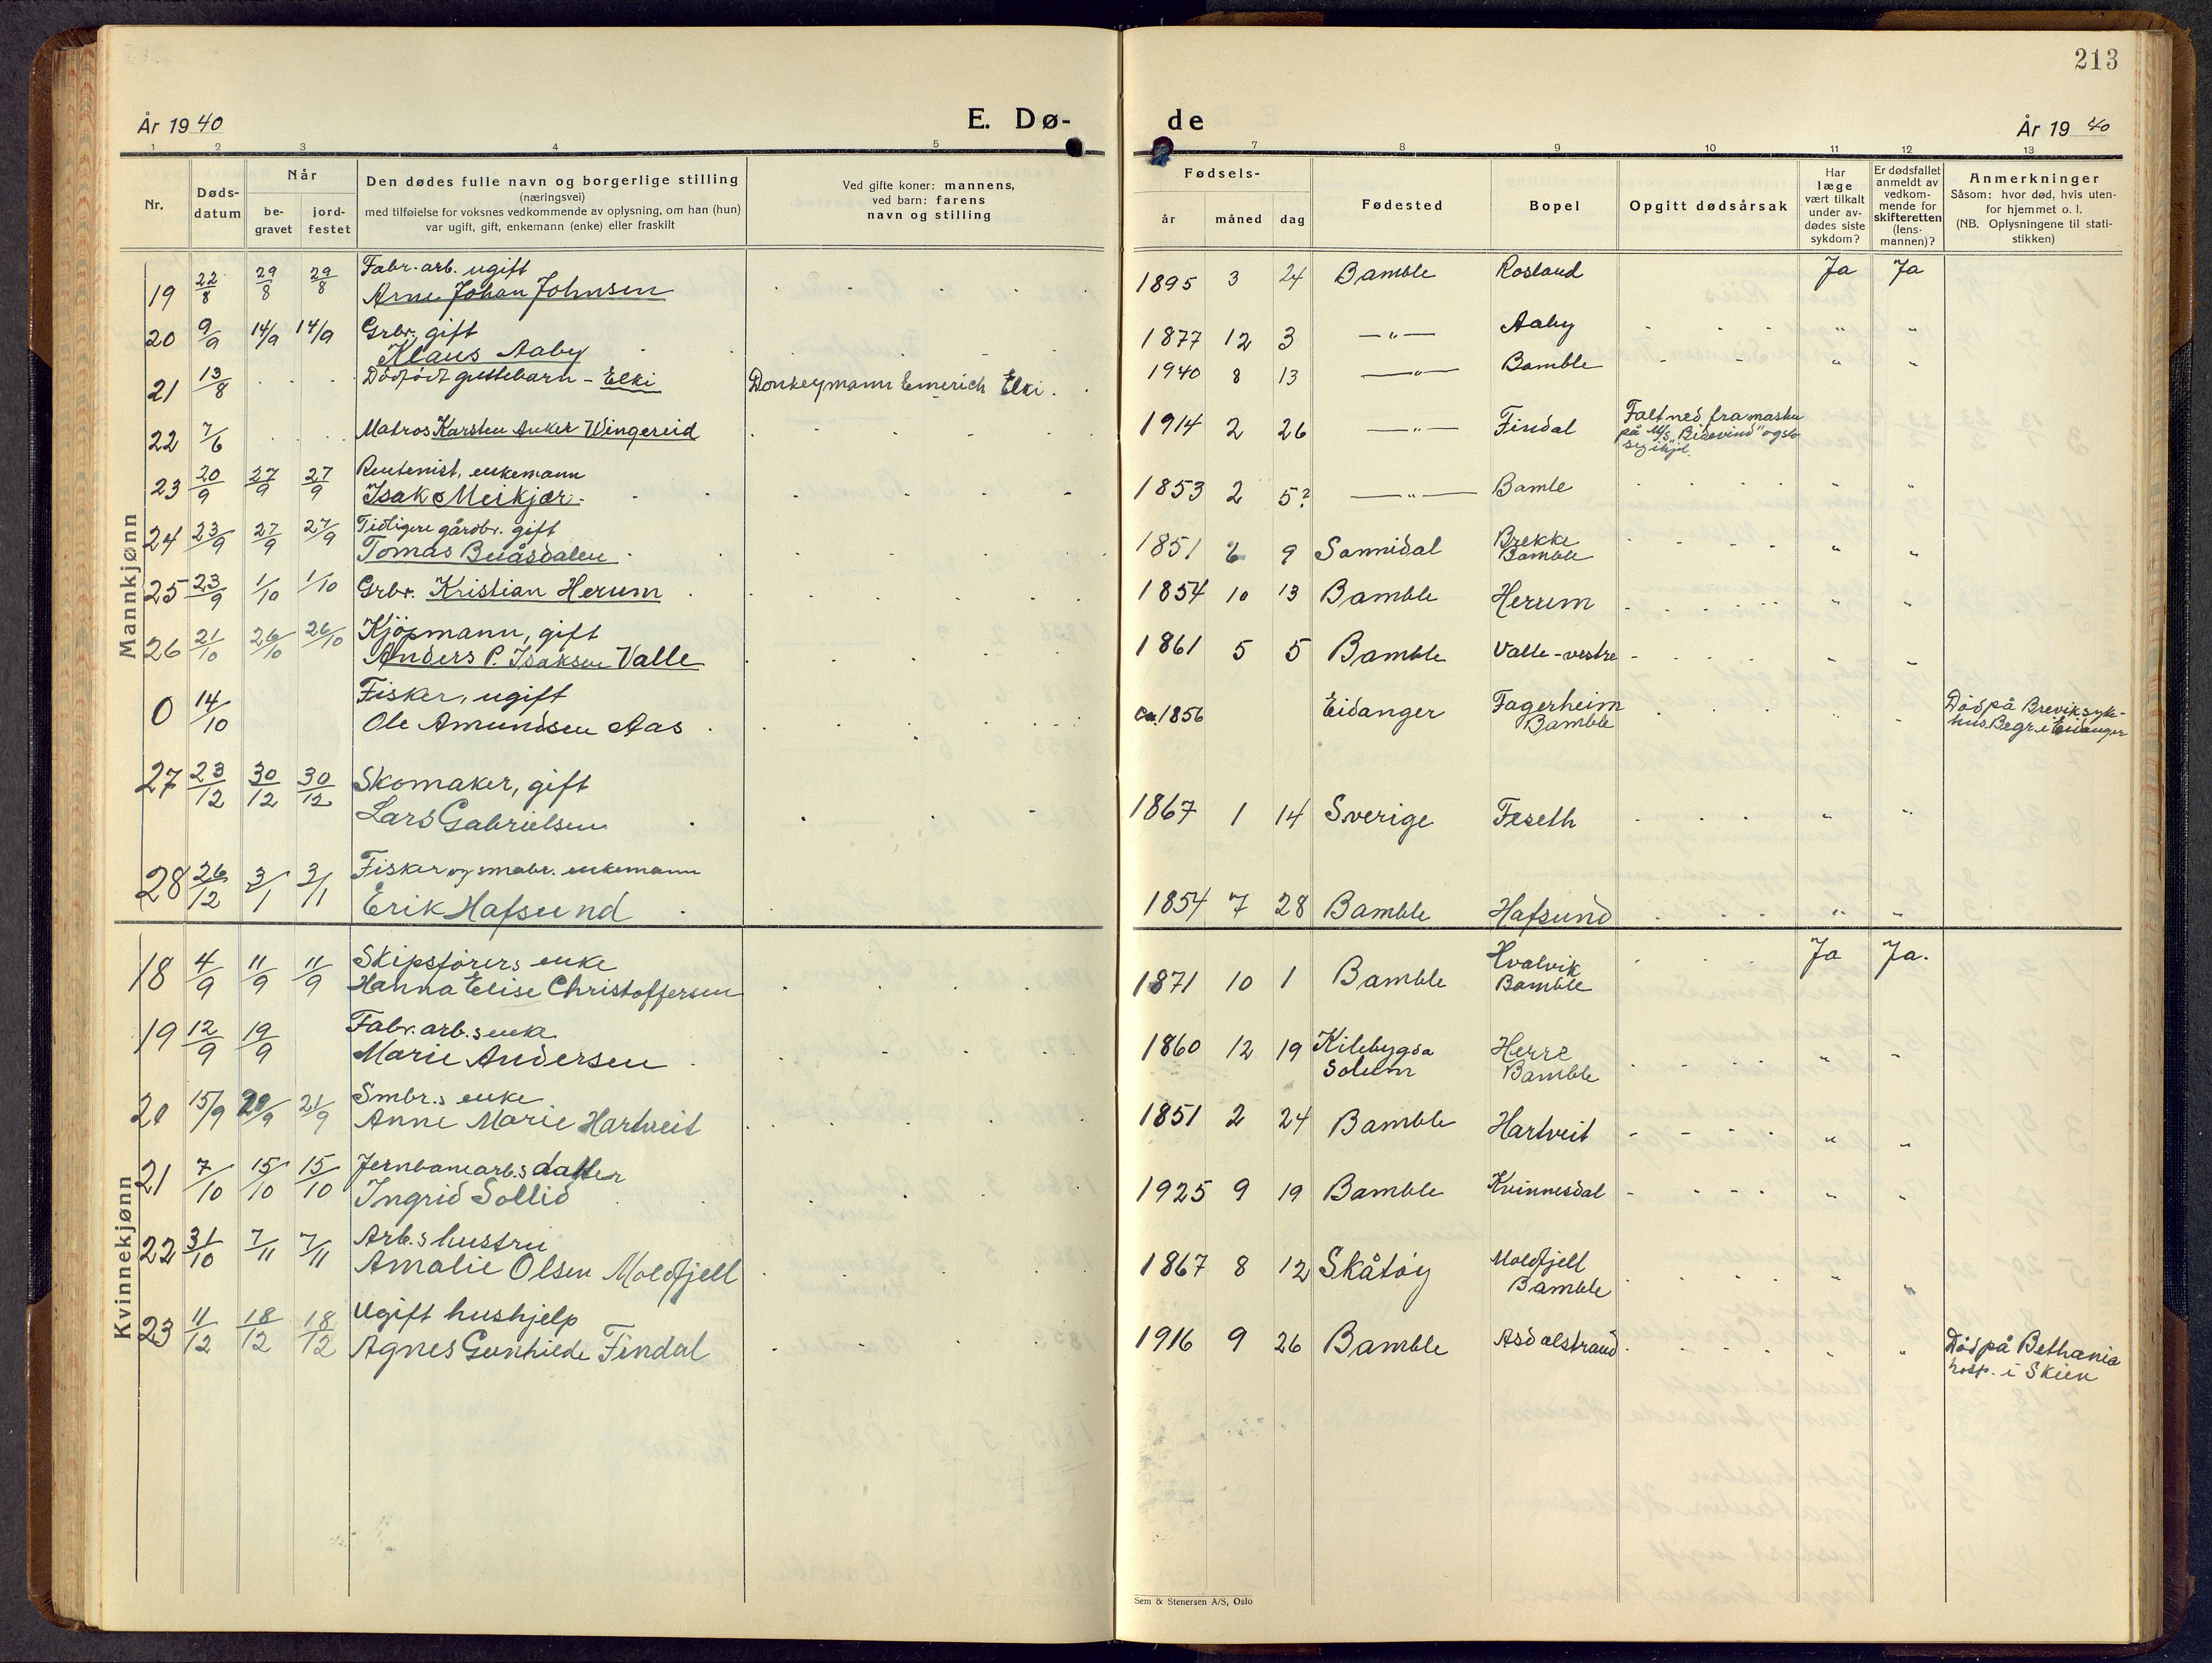 213
År 1940
E. Dø-
de
År 19 40
1 2 3 4 5 7 8 9 10 11 12 13
Nr.
Døds-
datum
Når
be-
gravet
jord-
festet
Den dødes fulle navn og borgerlige stilling
(næringsvei)
med tilføielse for voksnes vedkommende av oplysning, om han (hun)
var ugift, gift, enkemann (enke) eller fraskilt
Ved gifte koner: mannens,
ved barn: farens
navn og stilling
Fødsels-
år måned dag
Fødested
Bopel
Opgitt dødsårsak
Har
læge
vært tilkalt
under av-
dødes siste
sykdom?
Er dødsfallet
anmeldt av
vedkom-
mende for
skifteretten
(lens-
mannen)?
Anmerkninger
Såsom: hvor død, hvis uten-
for hjemmet o. l.
(NB. Oplysningene til stati-
stikken)
Mannkjønn
19 22/8 29/8 29/8 Fabr. arb. ugift
Arne Johan Johnsen 1895 3 24 Bamble Rosland Ja Ja
20 9/9 14/9 14/9 Grbr., gift
Klaus Aaby 1877 12 3 —"— Aaby " "
21 13/8 Dødfødt guttebarn - Elki Donkeymann Emerich Elki. 1940 8 13 —"— Bamble " "
22 7/6 Matros Karsten Anker Wingereid 1914 2 26 —"— Findal Falt ned fra masten
på M/S "Bidevind" og slo
sig ihjel.
23 20/9 27/9 27/9 Rentenist, enkemann
Isak Meikjær 1853 2 5? —"— Bamle " "
24 23/9 27/9 27/9 Tidligere gårdbr. gift
Tomas Buåsdalen 1851 6 9 Sannidal Brekke
Bamble " "
25 23/9 1/10 1/10 Grbr. Kristian Herum 1854 10 13 Bamble Herum " "
26 21/10 26/10 26/10 Kjøpmann, gift
Anders P. Isaksen Valle 1861 5 5 Bamble Valle - vestre " "
0 14/10 Fisker, ugift
Ole Amundsen Aas ca. 1856 Eidanger Fagerheim
Bamble " " Død på Brevik syk-
hus. Begr. i Eidanger
27 23/12 30/12 30/12 Skomaker, gift
Lars Gabrielsen 1867 1 14 Sverige Feseth " "
28 26/12 3/1 3/1 Fisker og smabr. enkemann
Erik Hafsund 1854 7 28 Bamble Hafsund " "
Kvinnekjønn
18 4/9 11/9 11/9 Skipsførers enke
Hanna Elise Christoffersen 1871 10 1 Bamble Hvalvik
Bamble Ja Ja.
19 12/9 19/9 Fabr. arb.s enke
Marie Andersen 1860 12 19 Kilebygda
Solum Herre
Bamble " "
20 15/9 20/9 21/9 Smbr.s enke
Anne Marie Hartveit 1851 2 24 Bamble Hartveit " "
21 7/10 15/10 15/10 Jernbanearb.s datter
Ingrid Sollid 1925 9 19 Bamble Kvinnesdal " "
22 31/10 7/11 7/11 Arb.s hustru
Amalie Olsen Moldfjell 1867 8 12 Skåtøy Moldfjell
Bamble " "
23 11/12 18/12 18/12 Ugift hushjelp
Agnes Gunhilde Findal 1916 9 26 Bamble Asdalstrand " " Død på Bethania
hosp. i Skien
Sem & Stenersen A/S, Oslo